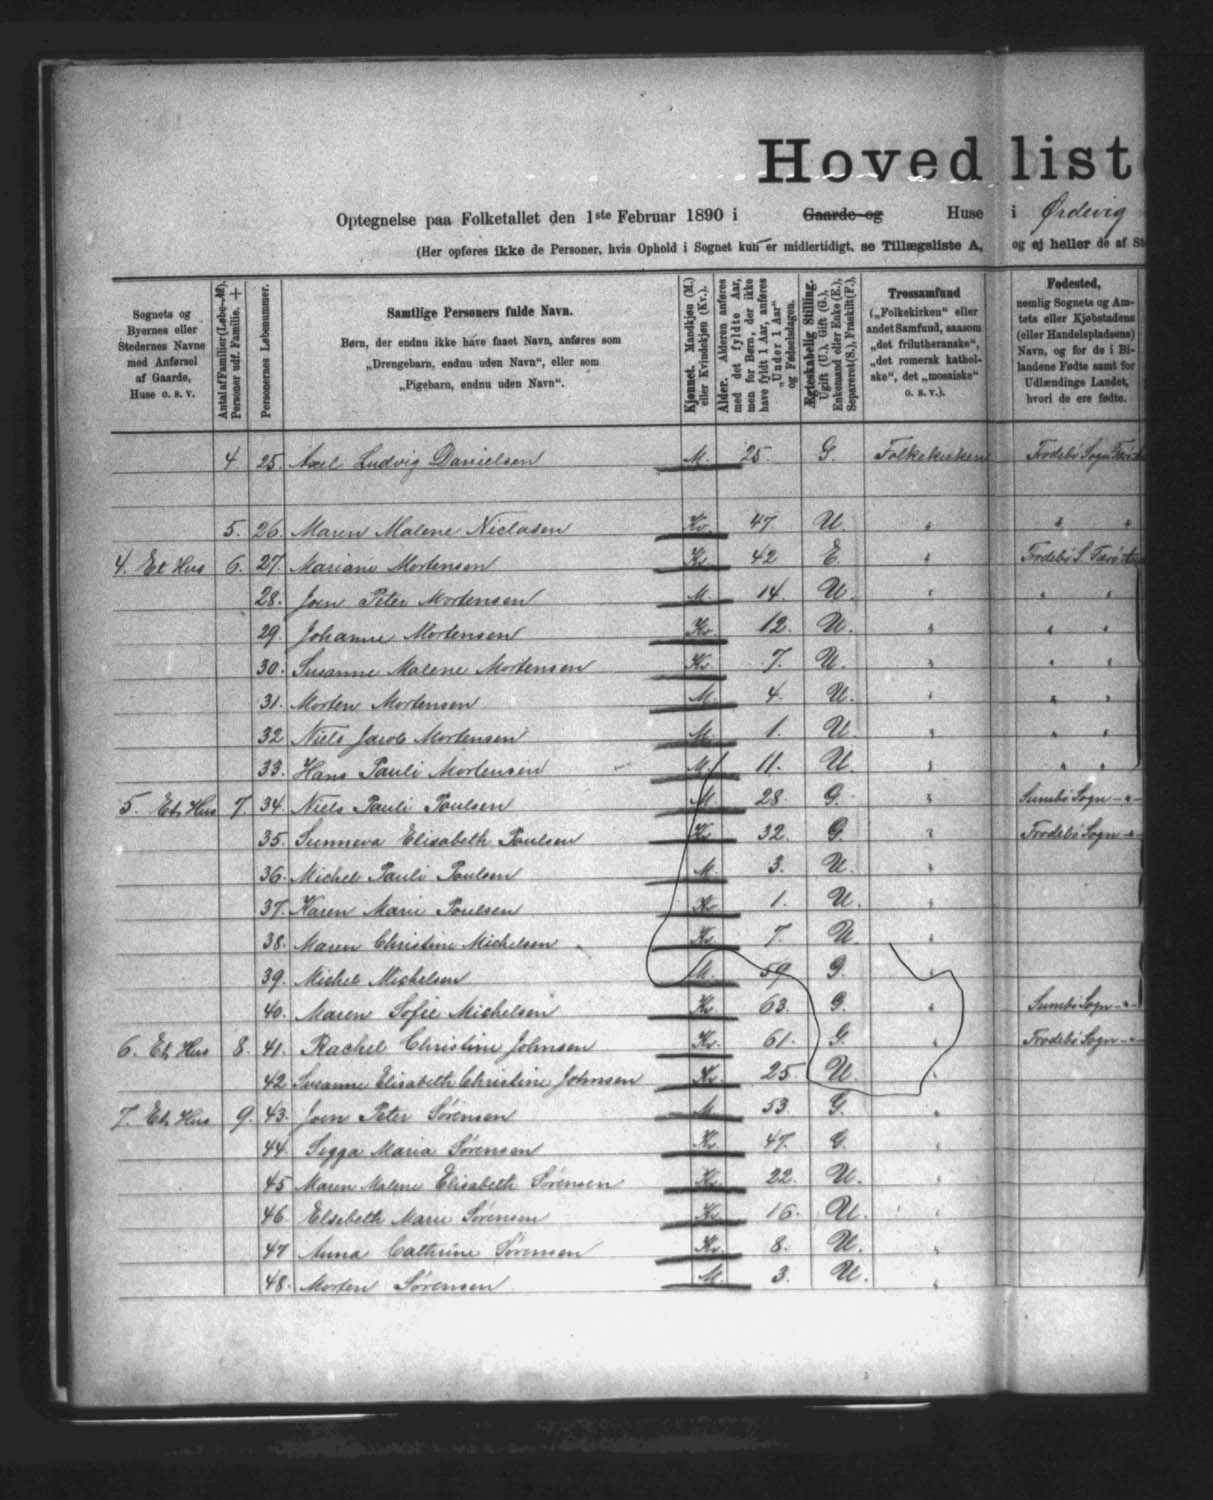 Hovedlist
Optegnelse paa Folketallet den 1ste Februar 1890 i Gaarde og Huse i Ørdevig
(Her opføres ikke de Personer, hvis Ophold i Sognet kun er midlertidigt, se Tillægsliste A, og ej heller de af
Sognets og Byernes eller Stedernes Navne med Anførsel af Gaarde, Huse o. s. v.
Antal af Familier (Løbe-№). Personer udf. Familie. +
Personernes Løbenummer.
Samtlige Personers fulde Navn.
Børn, der endnu ikke have faaet Navn, anføres som
„Drengebarn, endnu uden Navn“, eller som
„Pigebarn, endnu uden Navn“.
Kjønnet. Mandkjøn (M.) eller Kvindekjøn (Kv.).
Alder. Alderen anføres med det fyldte Aar, men for Børn, der ikke have fyldt 1 Aar, anføres „Under 1 Aar“ og Fødselsdagen.
Ægteskabelig Stilling. Ugift (U.), Gift (G.), Enkemand eller Enke (E.), Separeret (S.), Fraskilt (F.).
Trossamfund
(„Folkekirken“ eller andet Samfund, saasom „det frilutheranske“, „det romersk katholske“, det „mosaiske“ o. s. v.).
Fødested,
nemlig Sognets og Amtets eller Kjøbstadens (eller Handelspladsens) Navn, og for de i Bilandene Fødte samt for Udlændinge Landet, hvori de ere fødte.
4. 25. Axel Ludvig Danielsen M. 25. G. Folkekirken Frodebø Sogn
5. 26. Maren Malene Niclasen Kv. 47. U. " " "
4. Et Hus 6. 27. Mariane Mortensen Kv. 42 E. " Frodebø S.
28. Joen Peter Mortensen M. 14. U. " " "
29. Johanne Mortensen Kv. 12. U. " " "
30. Susanne Malene Mortensen Kv. 7. U. " " "
31. Morten Mortensen M. 4. U. " " "
32 Niels Jacob Mortensen M. 1. U. " " "
33. Hans Pauli Mortensen M. 11. U. " " "
5. Et Hus 7. 34. Niels Pauli Poulsen M. 28. G. " Sumbø Sogn - " -
35. Sunneva Elisabeth Poulsen Kv. 32. G. " Frodebø Sogn - " -
36. Michel Pauli Poulsen M. 3. U. "
37. Karen Marie Poulsen Kv. 1. U. "
38. Maren Christine Michelsen Kv. 7. U. "
39. Michel Michelsen M. 59 G. "
40. Maren Sofie Michelsen Kv. 63. G. " Sumbø Sogn - " -
6. Et Hus 8. 41. Rachel Christine Johnsen Kv. 61. G. " Frodebø Sogn - " -
42 Susanne Elisabeth Christine Johnsen Kv. 25. U. "
7. Et Hus 9. 43. Joen Peter Sørensen M. 53. G. "
44 Sigga Maria Sørensen Kv. 47. G. "
45 Maren Malene Elisabeth Sørensen Kv. 22. U. "
46. Elsebeth Marie Sørensen Kv. 16. U. "
47 Anna Cathrine Sørensen Kv. 8. U. "
48. Morten Sørensen M. 3. U. "